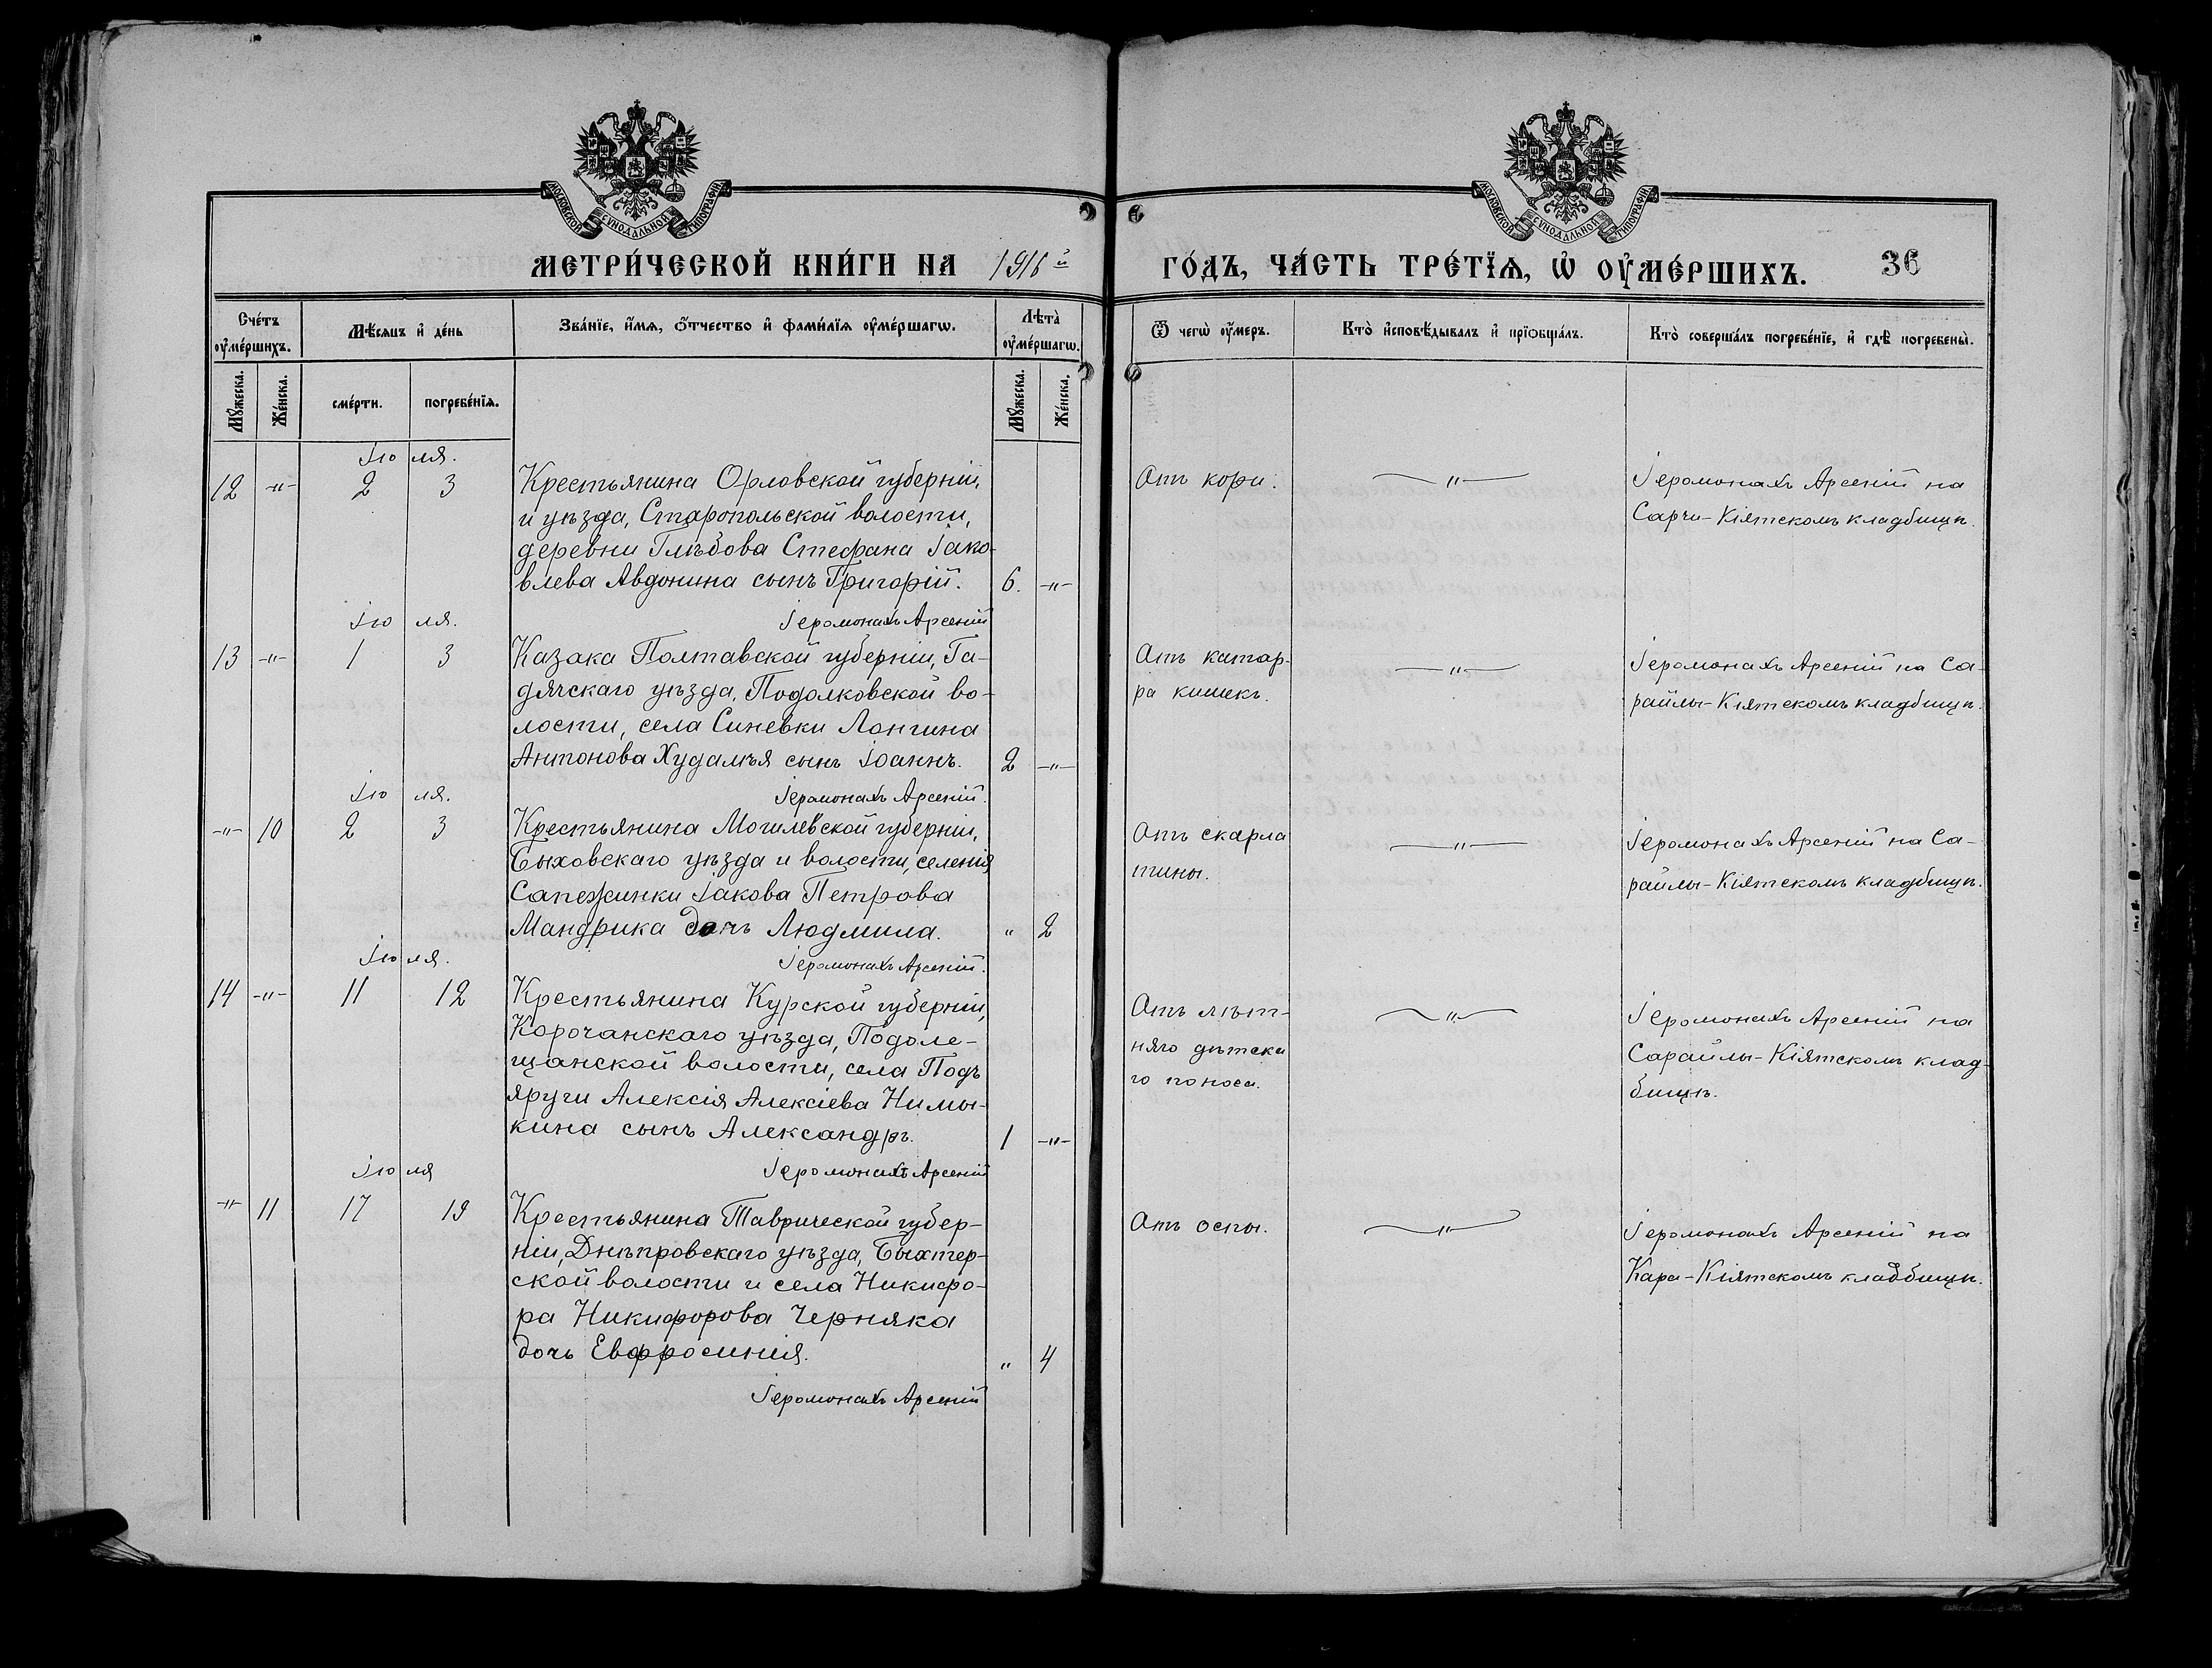 МОСКОВСКОЙ СѴНОДАЛЬНОЙ ТИПОГРАФІИ
МОСКОВСКОЙ СѴНОДАЛЬНОЙ ТИПОГРАФІИ
МЕТРИ́ЧЕСКОЙ КНИ́ГИ НА 1916й ГО́ДЪ, ЧА́СТЬ ТРЕ́ТІѦ, Ѡ ОУМЕ́РШИХЪ. 36
Сче́тъ оумершихъ.
Мѣсяцъ и де́нь
Зва́нїе, и́мя, о́тчество и фами́лїя оуме́ршагѡ.
Лѣта̀ оуме́ршагѡ.
Ѿ чегѡ̀ оу́меръ.
Кто̀ исповѣ́дывалъ и прїѡбща́лъ.
Кто̀ соверша́лъ погребе́нїе, и гдѣ̀ погребены̀.
Му́жеска.
Же́нска.
сме́рти.
погребе́нїя.
Му́жеска.
Же́нска.
Іюля.
12 -"- 2 3 Крестьянина Орловской губерніи,
и уѣзда, Старопольской волости,
деревни Глѣбова Стефана Іако-
влева Авдонина сынъ Григорій. 6. -"-
Отъ кори. -"-
Іеромонахъ Арсеній на
Сарчи-Кіятскомъ кладбищѣ.
Іеромонахъ Арсеній
Іюля.
13 -"- 1 3 Казака Полтавской губерніи, Га-
дячскаго уѣзда, Подолковской во-
лости, села Синевки Лонгина
Антонова Худалѣя сынъ Іоаннъ. 2 -"-
Отъ катар-
ра кишекъ. -"-
Іеромонахъ Арсеній на Са-
райлы-Кіятскомъ кладбищѣ.
Іеромонахъ Арсеній.
Іюля.
-"- 10 2 3 Крестьянина Могилевской губерніи,
Быховскаго уѣзда и волости, селенія
Сапежинки Іакова Петрова
Мандрика дочь Людмила. " 2
Отъ скарла
тины. -"-
Іеромонахъ Арсеній на Са-
райлы-Кіятскомъ кладбищѣ.
Іеромонахъ Арсеній.
Іюля.
14 -"- 11 12 Крестьянина Курской губерніи,
Корочанскаго уѣзда, Подоле-
щанской волости, села Подъ
яруги Алексія Алексіева Нимы-
кина сынъ Александръ. 1 -"-
Отъ лѣт-
няго дѣтска
го поноса. -"-
Іеромонахъ Арсеній на
Сарайлы-Кіятскомъ клад-
бищѣ.
Іеромонахъ Арсеній
Іюля
-"- 11 17 19 Крестьянина Таврической губер-
ніи, Днѣпровскаго уѣзда, Быхтер-
ской волости и села Никифо-
ра Никифорова Черняка
дочь Евфросинія. " 4
Отъ оспы. -"-
Іеромонахъ Арсеній на
Кара-Кіятскомъ кладбищѣ.
Іеромонахъ Арсеній